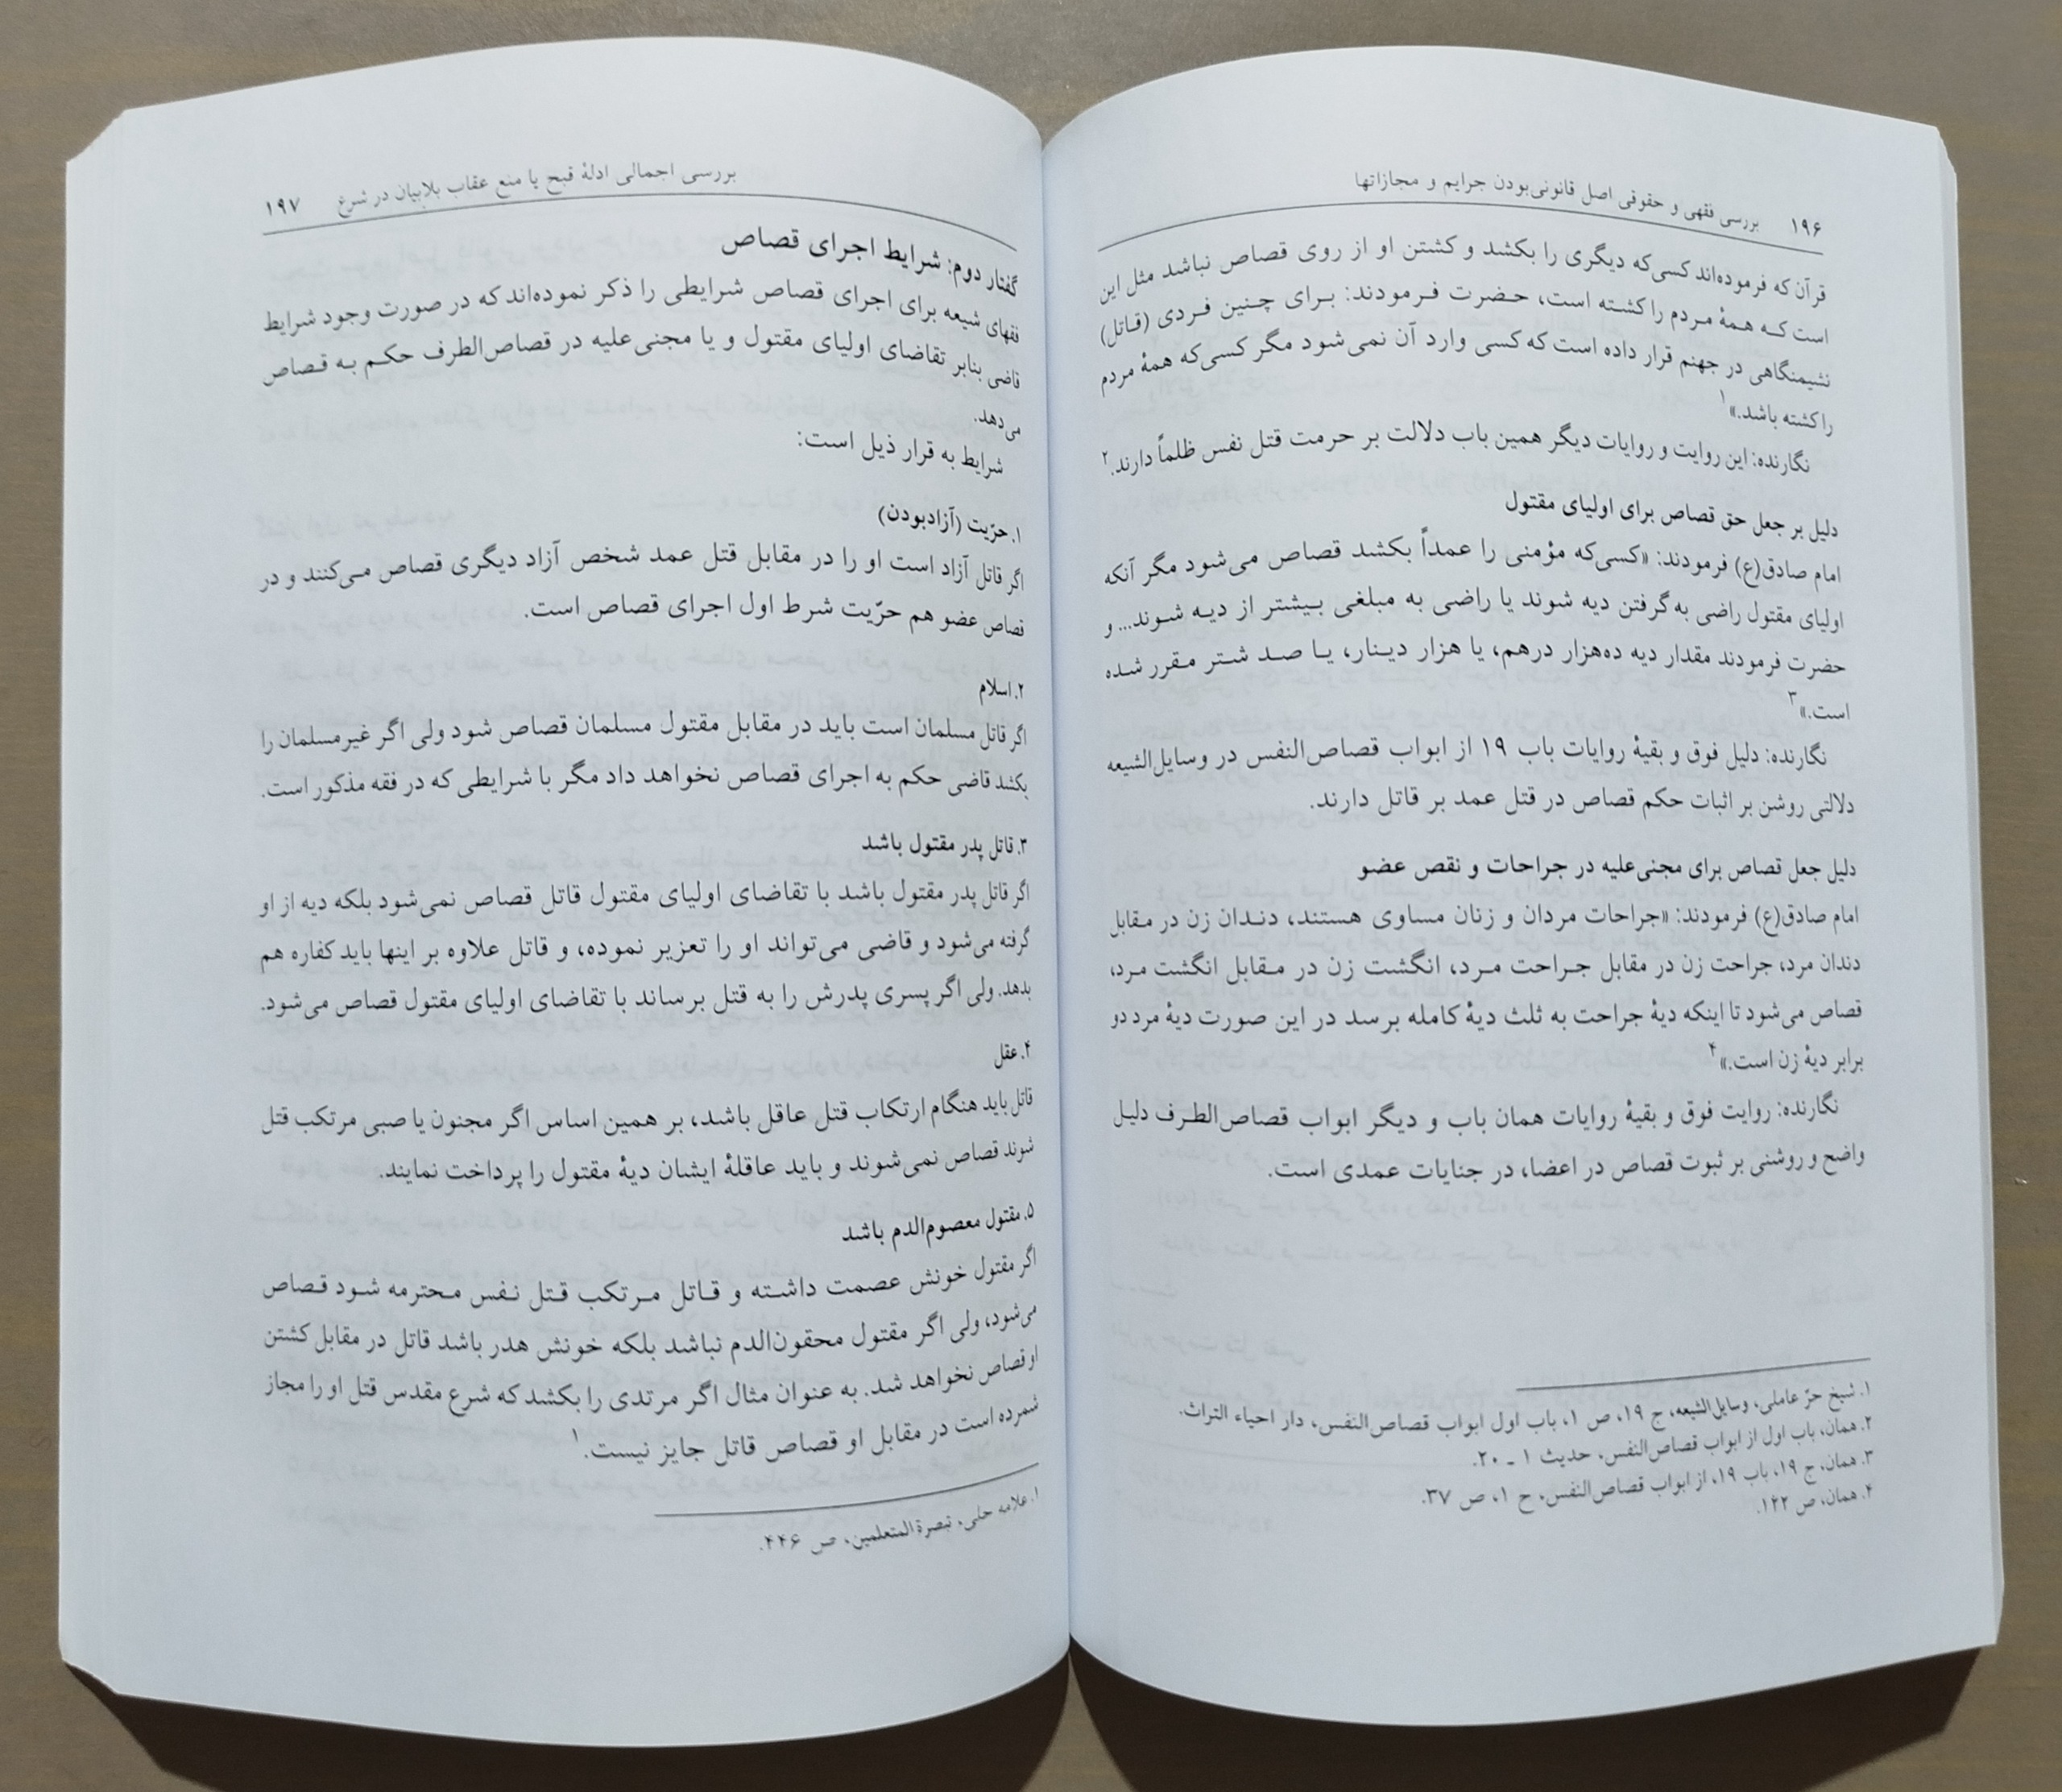 ۱۹۶ بررسی فقهی و حقوقی اصل قانونی‌بودن جرایم و مجازاتها
قرآن که فرموده‌اند کسی‌که دیگری را بکشد و کشتن او از روی قصاص نباشد مثل این
است کـه همۀ مردم را کشته است، حضرت فرمودند: برای چنین فردی (قاتل)
نشیمنگاهی در جهنم قرار داده است که کسی وارد آن نمی‌شود مگر کسی‌که همۀ مردم
را کشته باشد.»۱
نگارنده: این روایت و روایات دیگر همین باب دلالت بر حرمت قتل نفس ظلماً دارند.۲
دلیل بر جعل حق قصاص برای اولیای مقتول
امام صادق(ع) فرمودند: «کسی‌که مؤمنی را عمداً بکشد قصاص می‌شود مگر آنکه
اولیای مقتول راضی به گرفتن دیه شوند یا راضی به مبلغی بیشتر از دیه شوند... و
حضرت فرمودند مقدار دیه ده‌هزار درهم، یا هزار دینار، یا صد شتر مقرر شده
است.»۳
نگارنده: دلیل فوق و بقیۀ روایات باب ۱۹ از ابواب قصاص‌النفس در وسایل‌الشیعه
دلالتی روشن بر اثبات حکم قصاص در قتل عمد بر قاتل دارند.
دلیل جعل قصاص برای مجنی‌علیه در جراحات و نقص عضو
امام صادق(ع) فرمودند: «جراحات مردان و زنان مساوی هستند، دندان زن در مقابل
دندان مرد، جراحت زن در مقابل جراحت مرد، انگشت زن در مقابل انگشت مرد،
قصاص می‌شود تا اینکه دیۀ جراحت به ثلث دیۀ کامله برسد در این صورت دیۀ مرد دو
برابر دیۀ زن است.»۴
نگارنده: روایت فوق و بقیۀ روایات همان باب و دیگر ابواب قصاص‌الطرف دلیل
واضح و روشنی بر ثبوت قصاص در اعضا، در جنایات عمدی است.
۱. شیخ حرّ عاملی، وسایل‌الشیعه، ج ۱۹، ص ۱، باب اول ابواب قصاص‌النفس، دار احیاء التراث.
۲. همان، باب اول از ابواب قصاص‌النفس، حدیث ۱ ـ ۲۰.
۳. همان، ج ۱۹، باب ۱۹، از ابواب قصاص‌النفس، ح ۱، ص ۳۷.
۴. همان، ص ۱۲۲.
بررسی اجمالی ادلۀ قبح یا منع عقاب بلابیان در شرع ۱۹۷
گفتار دوم: شرایط اجرای قصاص
فقهای شیعه برای اجرای قصاص شرایطی را ذکر نموده‌اند که در صورت وجود شرایط
قاضی بنابر تقاضای اولیای مقتول و یا مجنی‌علیه در قصاص‌الطرف حکم به قصاص
می‌دهد.
شرایط به قرار ذیل است:
۱. حرّیت (آزادبودن)
اگر قاتل آزاد است او را در مقابل قتل عمد شخص آزاد دیگری قصاص می‌کنند و در
قصاص عضو هم حرّیت شرط اول اجرای قصاص است.
۲. اسلام
اگر قاتل مسلمان است باید در مقابل مقتول مسلمان قصاص شود ولی اگر غیرمسلمان را
بکشد قاضی حکم به اجرای قصاص نخواهد داد مگر با شرایطی که در فقه مذکور است.
۳. قاتل پدر مقتول باشد
اگر قاتل پدر مقتول باشد با تقاضای اولیای مقتول قاتل قصاص نمی‌شود بلکه دیه از او
گرفته می‌شود و قاضی می‌تواند او را تعزیر نموده، و قاتل علاوه بر اینها باید کفاره هم
بدهد. ولی اگر پسری پدرش را به قتل برساند با تقاضای اولیای مقتول قصاص می‌شود.
۴. عقل
قاتل باید هنگام ارتکاب قتل عاقل باشد، بر همین اساس اگر مجنون یا صبی مرتکب قتل
شوند قصاص نمی‌شوند و باید عاقلۀ ایشان دیۀ مقتول را پرداخت نمایند.
۵. مقتول معصوم‌الدم باشد
اگر مقتول خونش عصمت داشته و قاتل مرتکب قتل نفس محترمه شود قصاص
می‌شود، ولی اگر مقتول محقون‌الدم نباشد بلکه خونش هدر باشد قاتل در مقابل کشتن
او قصاص نخواهد شد. به عنوان مثال اگر مرتدی را بکشد که شرع مقدس قتل او را مجاز
شمرده است در مقابل او قصاص قاتل جایز نیست.۱
۱. علامه حلی، تبصرة المتعلمین، ص ۴۴۶.